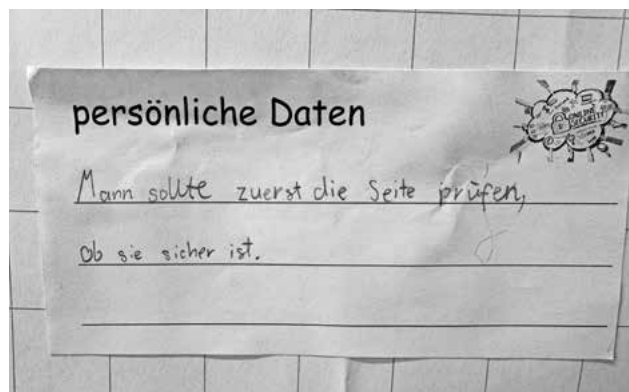 persönliche Daten
ONLINE
SECURITY
Mann sollte zuerst die Seite prüfen,
ob sie sicher ist.